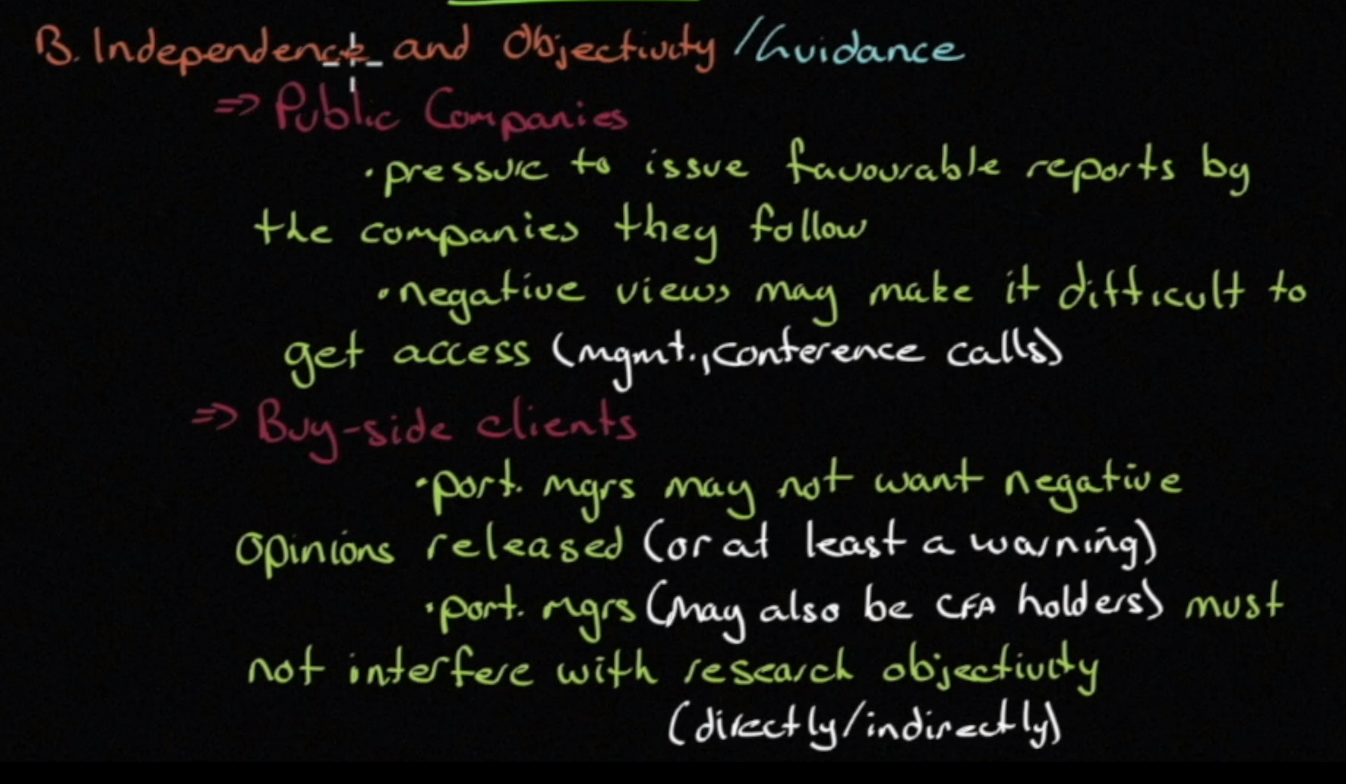 B. Independence and Objectivity /Guidance
=> Public Companies
• pressure to issue favourable reports by
the companies they follow
• negative views may make it difficult to
get access (mgmt., conference calls)
=> Buy-side clients
• port. mgrs may not want negative
opinions released (or at least a warning)
• port. mgrs (may also be CFA holders) must
not interfere with research objectivity
(directly/indirectly)